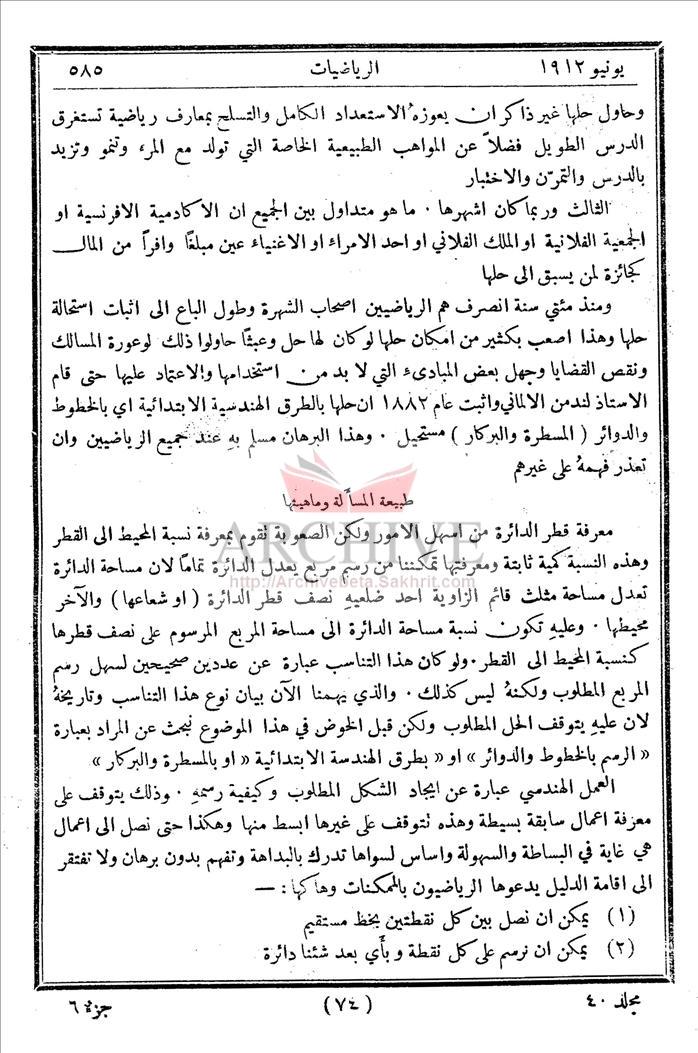 يونيو ١٩١٢ الرياضيات ٥٨٥
وحاول حلها غير ذاكر ان يعوزهُ الاستعداد الكامل والتسلح بمعارف رياضية تستغرق
الدرس الطويل فضلاً عن المواهب الطبيعية الخاصة التي تولد مع المرء وتنمو وتزيد
بالدرس والتمرّن والاختبار
الثالث وربما كان اشهرها . ما هو متداول بين الجميع ان الاكادمية الافرنسية او
الجمعية الفلانية او الملك الفلاني او احد الامراء او الاغنياء عين مبلغًا وافراً من المال
كجائزة لمن يسبق الى حلها
ومنذ مئتي سنة انصرف هم الرياضيين اصحاب الشهرة وطول الباع الى اثبات استحالة
حلها وهذا اصعب بكثير من امكان حلها لو كان لها حل وعبثًا حاولوا ذلك لوعورة المسالك
ونقص القضايا وجهل بعض المبادىء التي لا بد من استخدامها والاعتماد عليها حتى قام
الاستاذ لندمن الالماني واثبت عام ١٨٨٢ ان حلها بالطرق الهندسية الابتدائية اي بالخطوط
والدوائر ( المسطرة والبركار ) مستحيل . وهذا البرهان مسلم بهِ عند جميع الرياضيين وان
تعذر فهمهُ على غيرهم
طبيعة المسأَلة وماهيتها
معرفة قطر الدائرة من اسهل الامور ولكن الصعوبة تقوم بمعرفة نسبة المحيط الى القطر
وهذه النسبة كمية ثابتة ومعرفتها تمكننا من رسم مربع يعدل الدائرة تمامًا لان مساحة الدائرة
تعدل مساحة مثلث قائم الزاوية احد ضلعيهِ نصف قطر الدائرة ( او شعاعها ) والآخر
محيطها . وعليهِ تكون نسبة مساحة الدائرة الى مساحة المربع المرسوم على نصف قطرها
كنسبة المحيط الى القطر . ولو كان هذا التناسب عبارة عن عددين صحيحين لسهل رسم
المربع المطلوب ولكنهُ ليس كذلك . والذي يهمنا الآن بيان نوع هذا التناسب وتاريخهُ
لان عليهِ يتوقف الحل المطلوب ولكن قبل الخوض في هذا الموضوع نبحث عن المراد بعبارة
« الرسم بالخطوط والدوائر » او « بطرق الهندسة الابتدائية « او بالمسطرة والبركار »
العمل الهندسي عبارة عن ايجاد الشكل المطلوب وكيفية رسمهِ . وذلك يتوقف على
معرفة اعمال سابقة بسيطة وهذه تتوقف على غيرها ابسط منها وهكذا حتى نصل الى اعمال
هي غاية في البساطة والسهولة واساس لسواها تدرك بالبداهة وتفهم بدون برهان ولا تفتقر
الى اقامة الدليل يدعوها الرياضيون بالممكنات وهاكها : —
(١) يمكن ان نصل بين كل نقطتين بخط مستقيم
(٢) يمكن ان نرسم على كل نقطة وبأَي بعد شئنا دائرة
مجلد ٤٠ (٧٤) جزء ٦
ARCHIVE
http://Archivebeta.Sakhrit.com